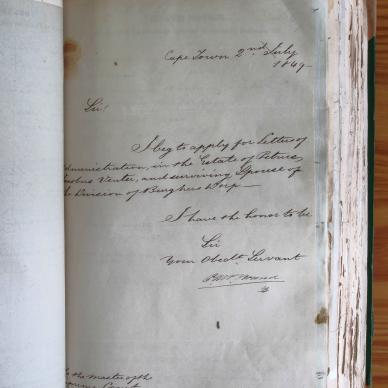 Cape Town 2nd July
1849
Sir!
I beg to apply for Letters of
dministration, in the Estate of Petrus
cobus Venter, and surviving Spouse of
e Division of Burghers Dorp—
I have the honor to be
Sir
Your Obedt. Servant
o the Master of the
preme Court